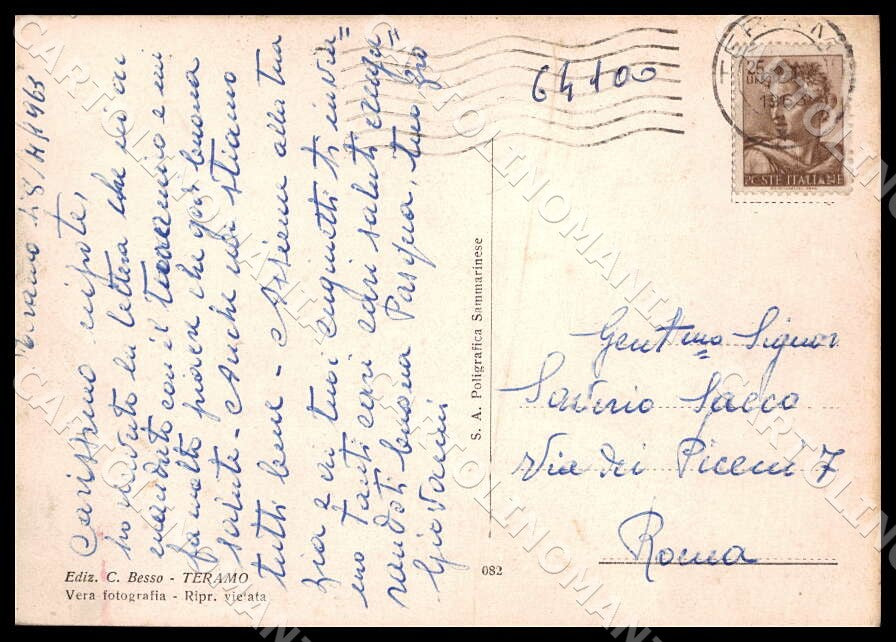 Teramo li 8/4/1963
Carissimo nipote,
ho ricevuto la lettera che mi ai
mandato con il e mi
fa molto piacere che godi buona
salute - Anche noi stiamo
tutti bene - Assieme alla tua
zia e ai tuoi cuginetti ti invia=
mo tanti cari saluti auguran=
doti buona Pasqua, tuo zio
Giovanni
64100
25
1963
POSTE ITALIANE
Gent.mo Signor
Saverio Sacco
Via dei Piceni 7
Roma
S. A. Poligrafica Sammarinese
Ediz. C. Besso - TERAMO
Vera fotografia - Ripr. vietata
082
CARTOLINOMANIA